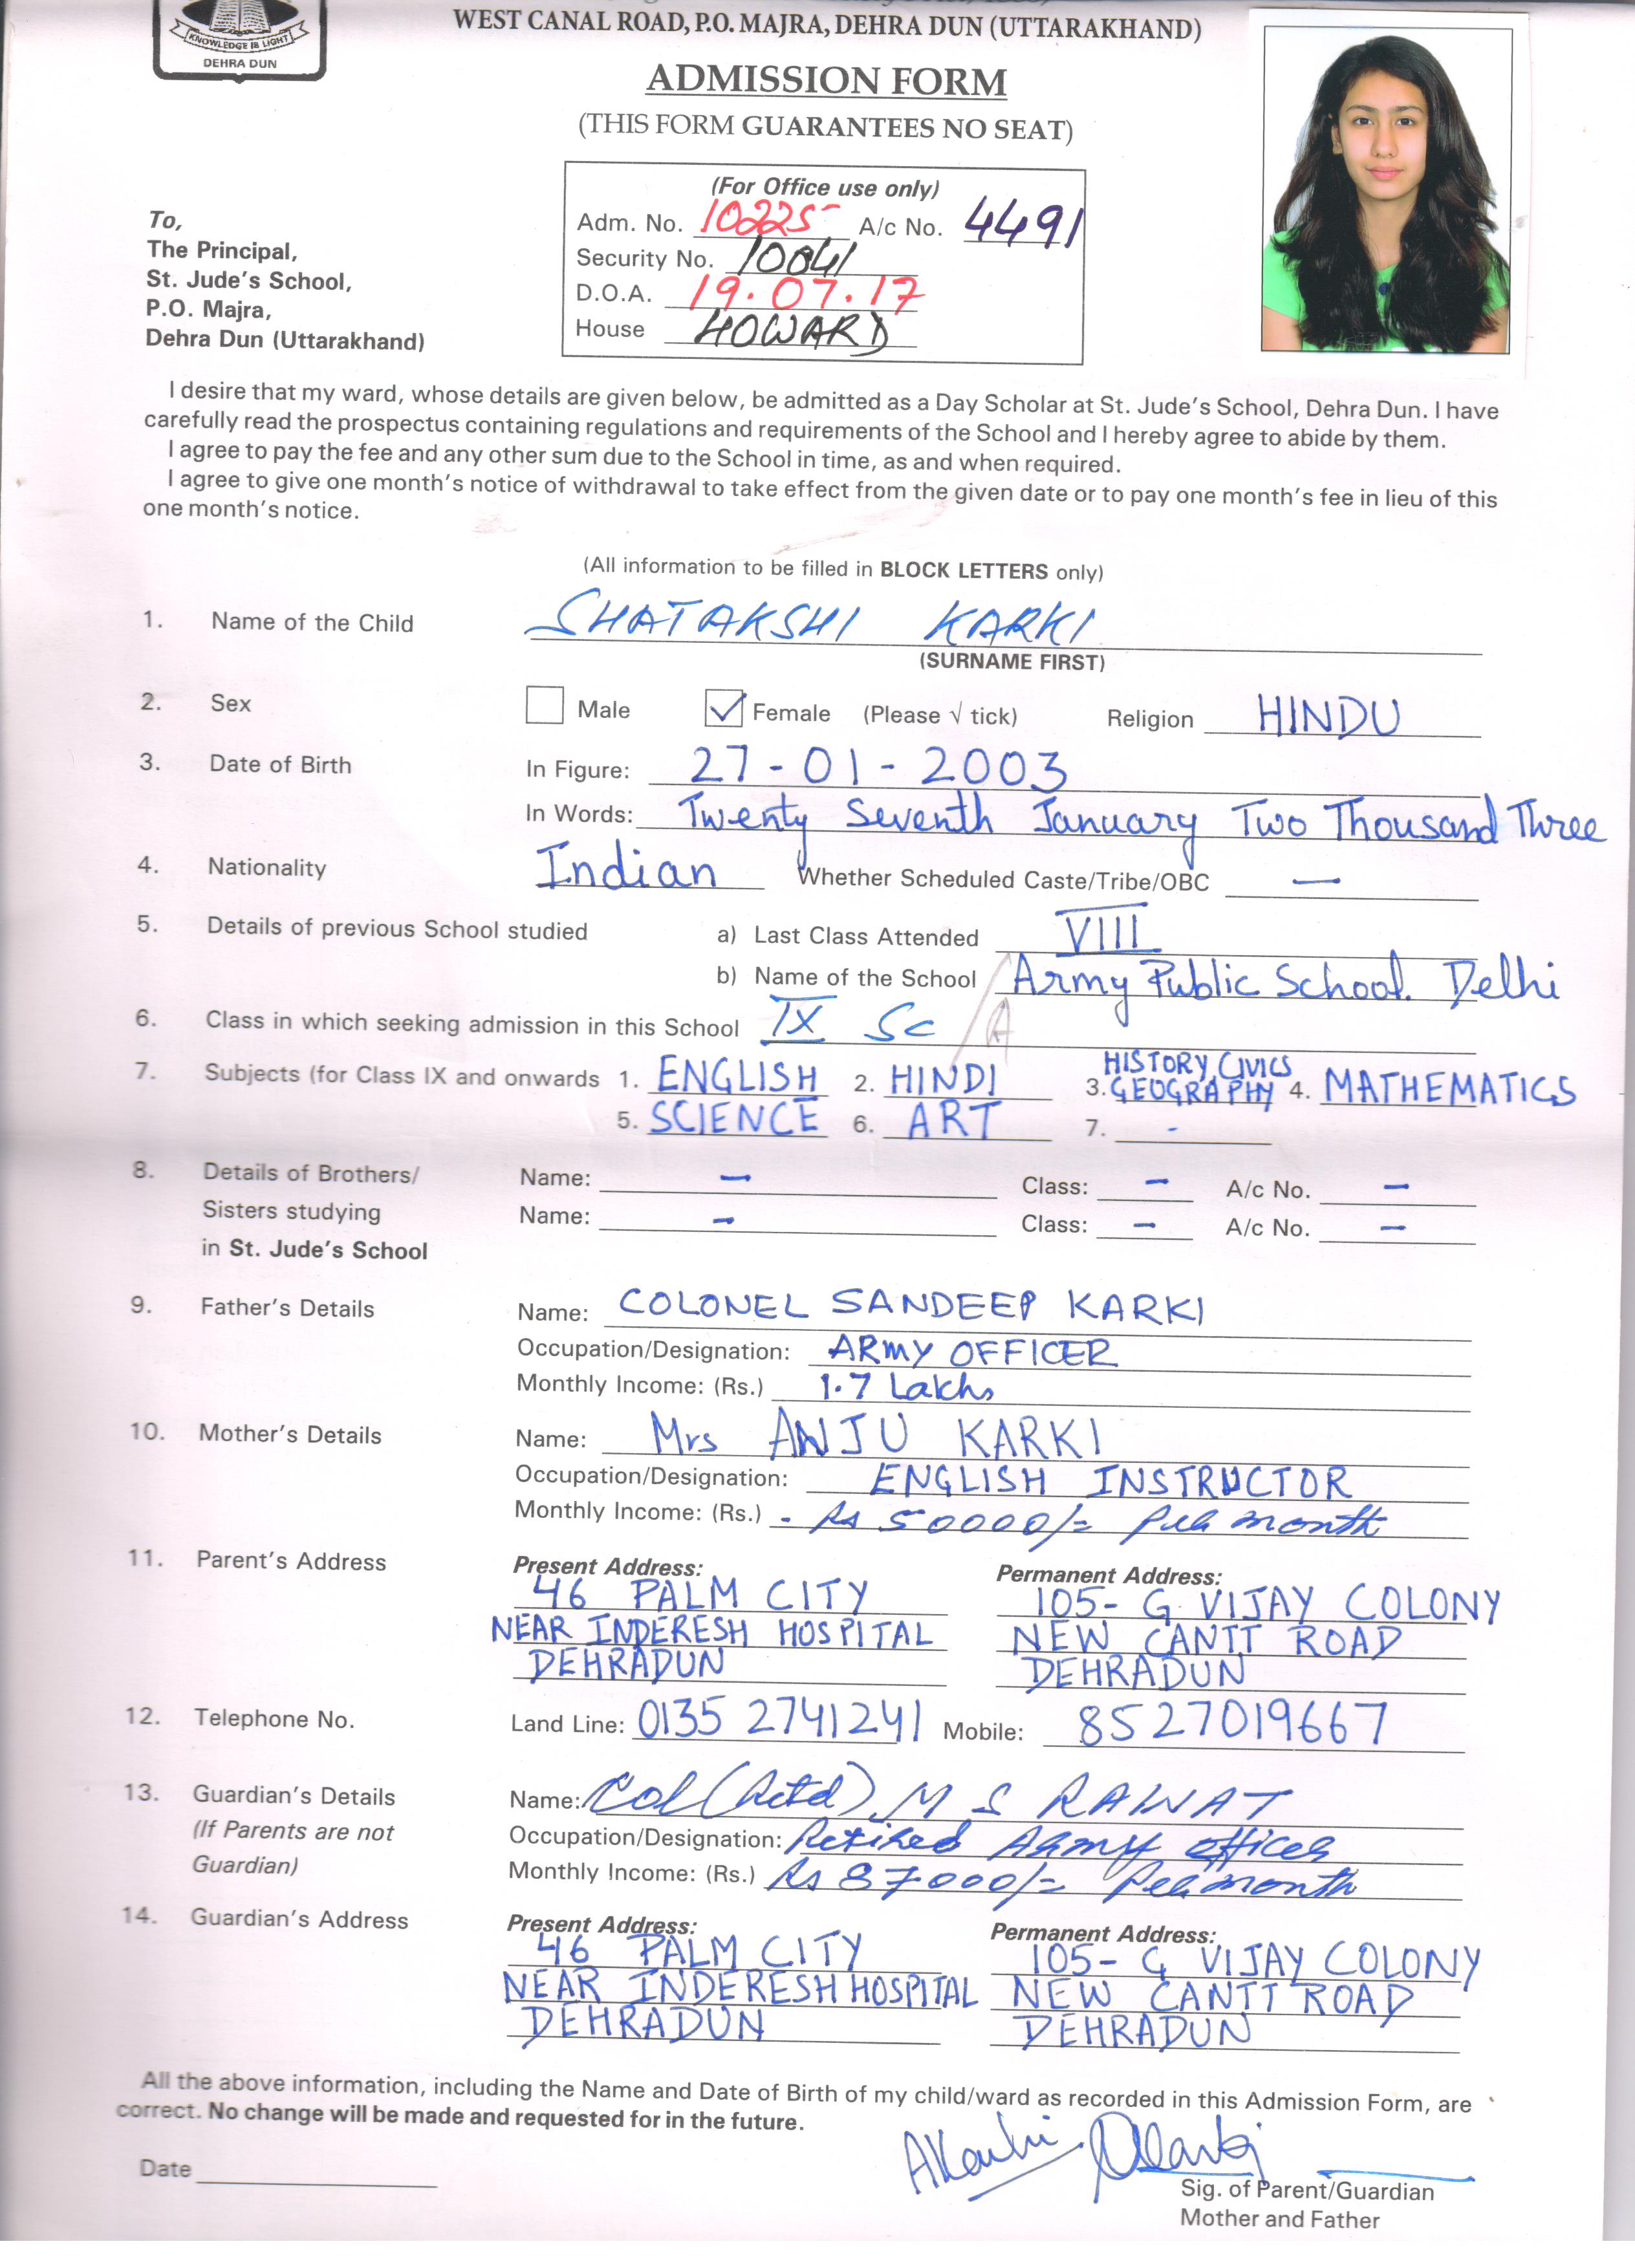 KNOWLEDGE IS LIGHT
DEHRA DUN
WEST CANAL ROAD, P.O. MAJRA, DEHRA DUN (UTTARAKHAND)
ADMISSION FORM
(THIS FORM GUARANTEES NO SEAT)
(For Office use only)
Adm. No. 10225 A/c No. 4491
Security No. 10041
D.O.A. 19.07.17
House HOWARD
To,
The Principal,
St. Jude's School,
P.O. Majra,
Dehra Dun (Uttarakhand)
I desire that my ward, whose details are given below, be admitted as a Day Scholar at St. Jude's School, Dehra Dun. I have
carefully read the prospectus containing regulations and requirements of the School and I hereby agree to abide by them.
I agree to pay the fee and any other sum due to the School in time, as and when required.
I agree to give one month's notice of withdrawal to take effect from the given date or to pay one month's fee in lieu of this
one month's notice.
(All information to be filled in BLOCK LETTERS only)
1. Name of the Child SHATAKSHI KARKI
(SURNAME FIRST)
2. Sex Male Female (Please √ tick) Religion HINDU
3. Date of Birth In Figure: 27-01-2003
In Words: Twenty Seventh January Two Thousand Three
4. Nationality Indian Whether Scheduled Caste/Tribe/OBC —
5. Details of previous School studied a) Last Class Attended VIII
b) Name of the School Army Public School. Delhi
6. Class in which seeking admission in this School IX Sc /A
7. Subjects (for Class IX and onwards 1. ENGLISH 2. HINDI 3. HISTORY, CIVICS GEOGRAPHY 4. MATHEMATICS
5. SCIENCE 6. ART 7. -
8. Details of Brothers/ Name: — Class: — A/c No. —
Sisters studying Name: — Class: — A/c No. —
in St. Jude's School
9. Father's Details Name: COLONEL SANDEEP KARKI
Occupation/Designation: ARMY OFFICER
Monthly Income: (Rs.) 1.7 Lakhs
10. Mother's Details Name: Mrs ANJU KARKI
Occupation/Designation: ENGLISH INSTRUCTOR
Monthly Income: (Rs.) - Rs 50000/= per month
11. Parent's Address Present Address: Permanent Address:
46 PALM CITY 105-G VIJAY COLONY
NEAR INDERESH HOSPITAL NEW CANTT ROAD
DEHRADUN DEHRADUN
12. Telephone No. Land Line: 0135 2741241 Mobile: 8527019667
13. Guardian's Details Name: Col (Retd) M S RAWAT
(If Parents are not Occupation/Designation: Retired Army officer
Guardian) Monthly Income: (Rs.) Rs 87000/= Per month
14. Guardian's Address Present Address: Permanent Address:
46 PALM CITY 105-G VIJAY COLONY
NEAR INDERESH HOSPITAL NEW CANTT ROAD
DEHRADUN DEHRADUN
All the above information, including the Name and Date of Birth of my child/ward as recorded in this Admission Form, are
correct. No change will be made and requested for in the future.
AKarki
Date Sig. of Parent/Guardian
Mother and Father